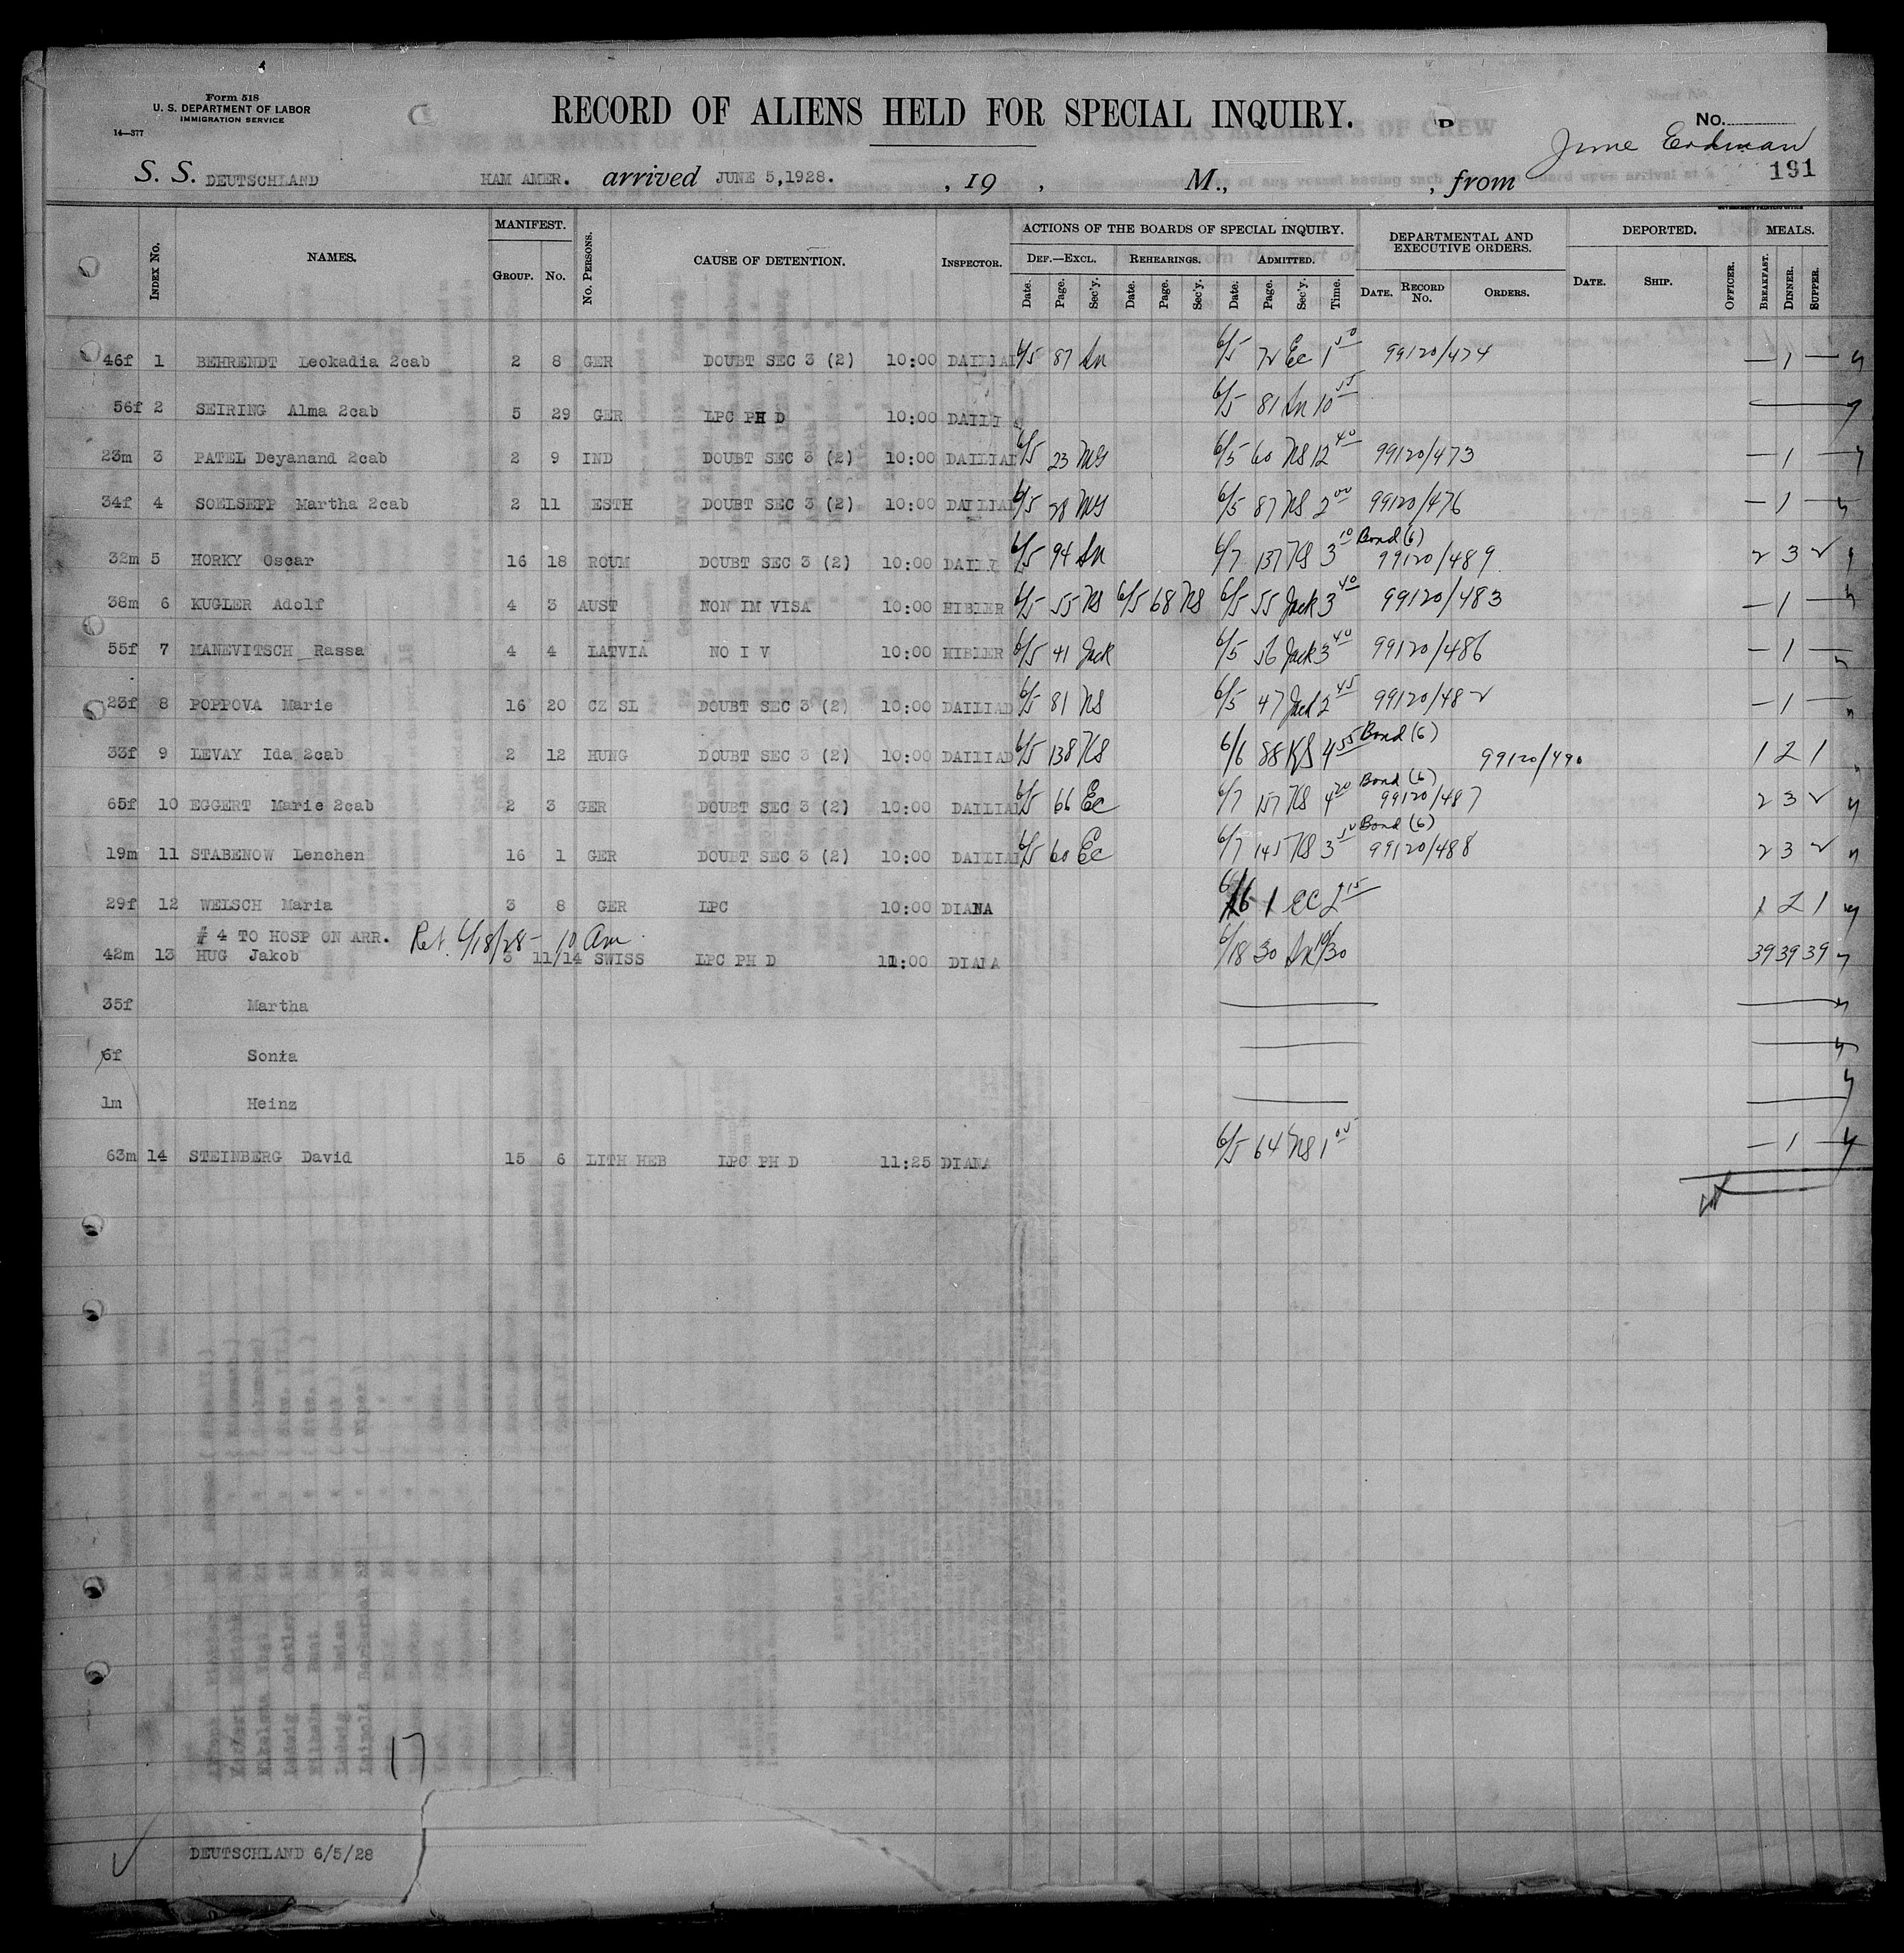 Form 518
U. S. DEPARTMENT OF LABOR
IMMIGRATION SERVICE
14—377
RECORD OF ALIENS HELD FOR SPECIAL INQUIRY.
No.
June Erdman
S. S. DEUTSCHLAND HAM AMER. arrived JUNE 5,1928. , 19 , M., , from 191
Index No. NAMES. MANIFEST. Group. No. No. Persons. CAUSE OF DETENTION. Inspector. ACTIONS OF THE BOARDS OF SPECIAL INQUIRY. DEPARTMENTAL AND EXECUTIVE ORDERS. DEPORTED. MEALS.
Def.—Excl. Rehearings. Admitted.
Date. Page. Sec'y. Date. Page. Sec'y. Date. Page. Sec'y. Time. Date. Record No. Orders. Date. Ship. Officer. Breakfast. Dinner. Supper.
46f 1 BEHRENDT Leokadia 2cab 2 8 GER DOUBT SEC 3 (2) 10:00 DAILIAD 6/5 87 6/5 72 Ec 1 50 99120/474 — 1 —
56f 2 SEIRING Alma 2cab 5 29 GER LPC PH D 10:00 DAILI 6/5 81 10 55
23m 3 PATEL Deyanand 2cab 2 9 IND DOUBT SEC 3 (2) 10:00 DAILIAD 6/5 23 MS 6/5 60 NS 12 40 99120/473 — 1 —
34f 4 SOELSEPP Martha 2cab 2 11 ESTH DOUBT SEC 3 (2) 10:00 DAILIAD 6/5 28 MS 6/5 87 NS 2 00 99120/476 — 1 —
32m 5 HORKY Oscar 16 18 ROUM DOUBT SEC 3 (2) 10:00 DAILI 6/5 94 6/7 137 NS 3 10 Bond (6) 99120/489 2 3 2
38m 6 KUGLER Adolf 4 3 AUST NON IM VISA 10:00 HIBLER 6/5 55 NS 6/5 68 NS 6/5 55 Jack 3 40 99120/483 — 1 —
55f 7 MANEVITSCH Rassa 4 4 LATVIA NO I V 10:00 HIBLER 6/5 41 Jack 6/5 56 Jack 3 40 99120/486 — 1 —
23f 8 POPPOVA Marie 16 20 CZ SL DOUBT SEC 3 (2) 10:00 DAILIAD 6/5 81 NS 6/5 47 Jack 2 45 99120/482 — 1 —
33f 9 LEVAY Ida 2cab 2 12 HUNG DOUBT SEC 3 (2) 10:00 DAILIAD 6/5 138 NS 6/6 88 NS 4 55 Bond (6) 99120/490 1 2 1
65f 10 EGGERT Marie 2cab 2 3 GER DOUBT SEC 3 (2) 10:00 DAILIAD 6/5 66 Ec 6/7 157 NS 4 20 Bond (6) 99120/487 2 3 2
19m 11 STABENOW Lenchen 16 1 GER DOUBT SEC 3 (2) 10:00 DAILIAD 6/5 60 Ec 6/7 145 NS 3 50 Bond (6) 99120/488 2 3 2
29f 12 WELSCH Maria 3 8 GER LPC 10:00 DIANA 6/6 1 EC 2 15 1 2 1
# 4 TO HOSP ON ARR. Ret. 6/18/28 - 10 Am
42m 13 HUG Jakob 3 11/14 SWISS LPC PH D 11:00 DIANA 6/18 30 10/30 39 39 39
35f Martha
6f Sonia
1m Heinz
63m 14 STEINBERG David 15 6 LITH HEB LPC PH D 11:25 DIANA 6/5 64 NS 1 05 — 1 —
17
DEUTSCHLAND 6/5/28